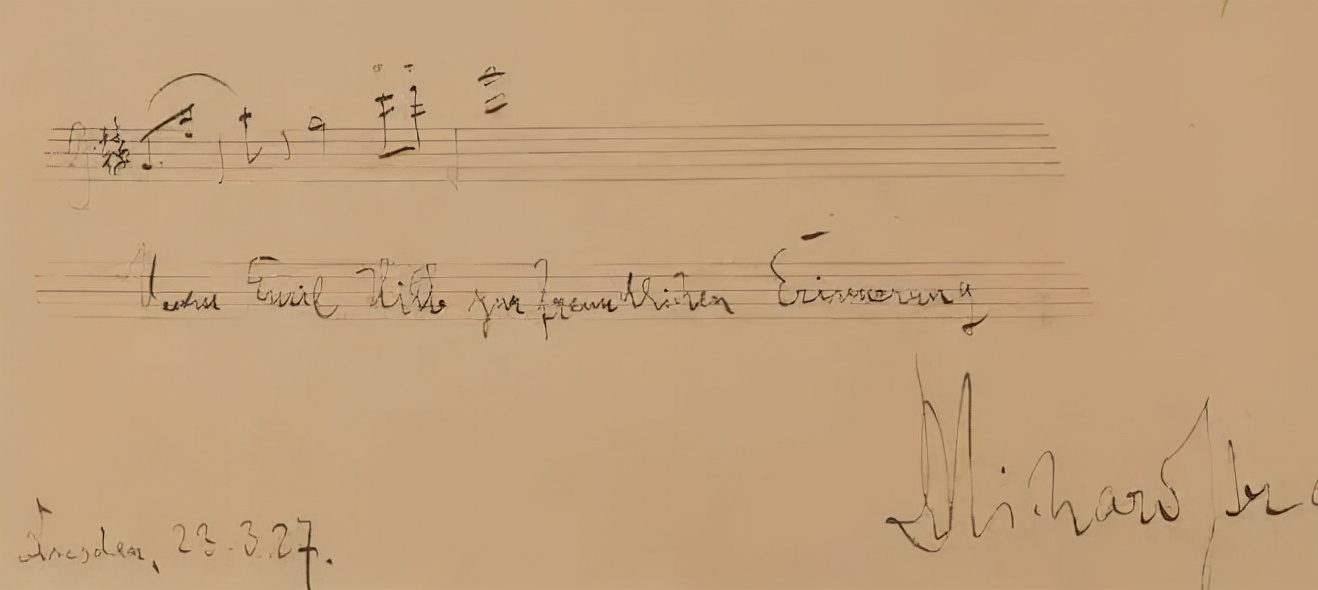 Herrn Emil zur freundlichen Erinnerung
Richard Stra
Dresden, 23.3.27.